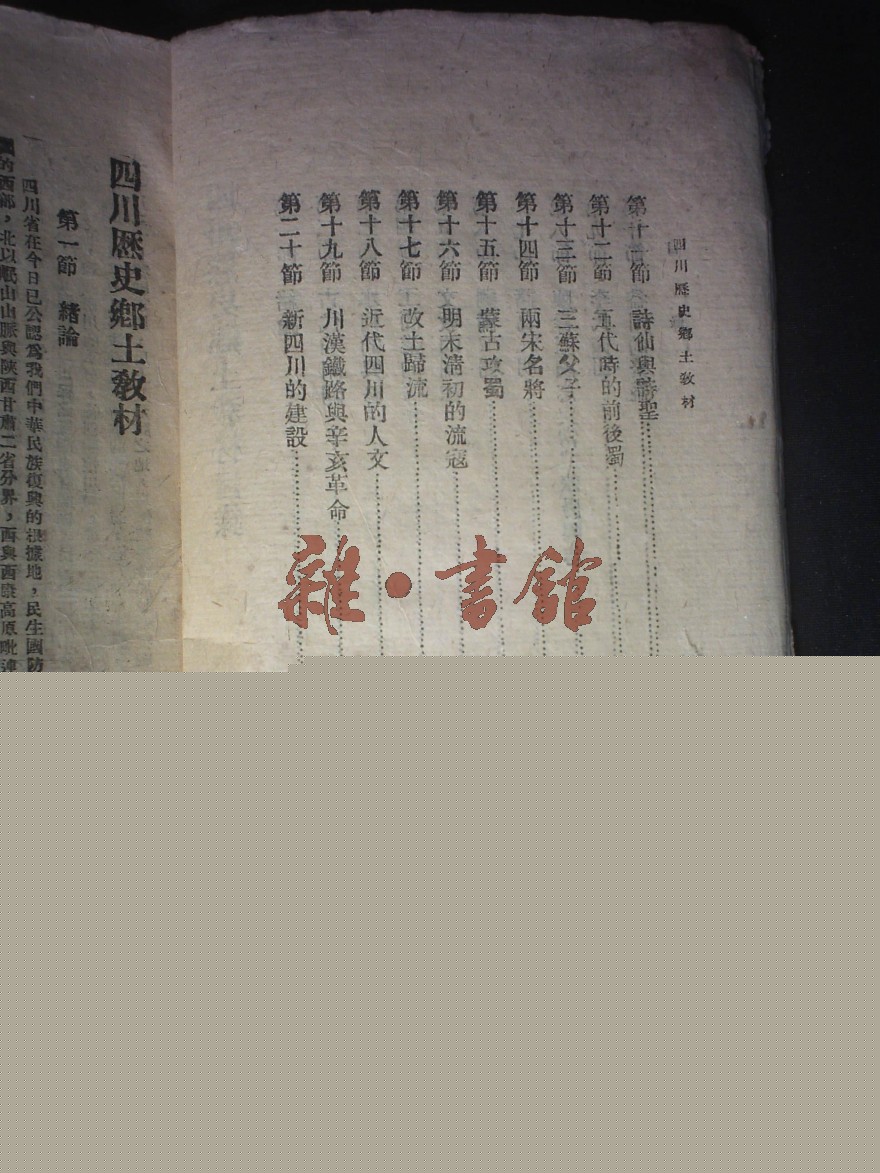 四川歷史鄉土教材
第十一節 詩仙與詩聖
第十二節 五代時的前後蜀
第十三節 三蘇父子
第十四節 兩宋名將
第十五節 蒙古攻蜀
第十六節 明末清初的流寇
第十七節 改土歸流
第十八節 近代四川的人文
第十九節 川漢鐵路與辛亥革命
第二十節 新四川的建設
四川歷史鄉土教材
第一節 緒論
一 四川省在今日已公認爲我們中華民族復興的根據地，民生國防
國的西部，北以岷山山脈與陝西甘肅二省分界，西與西康高原毗連
雜·書館